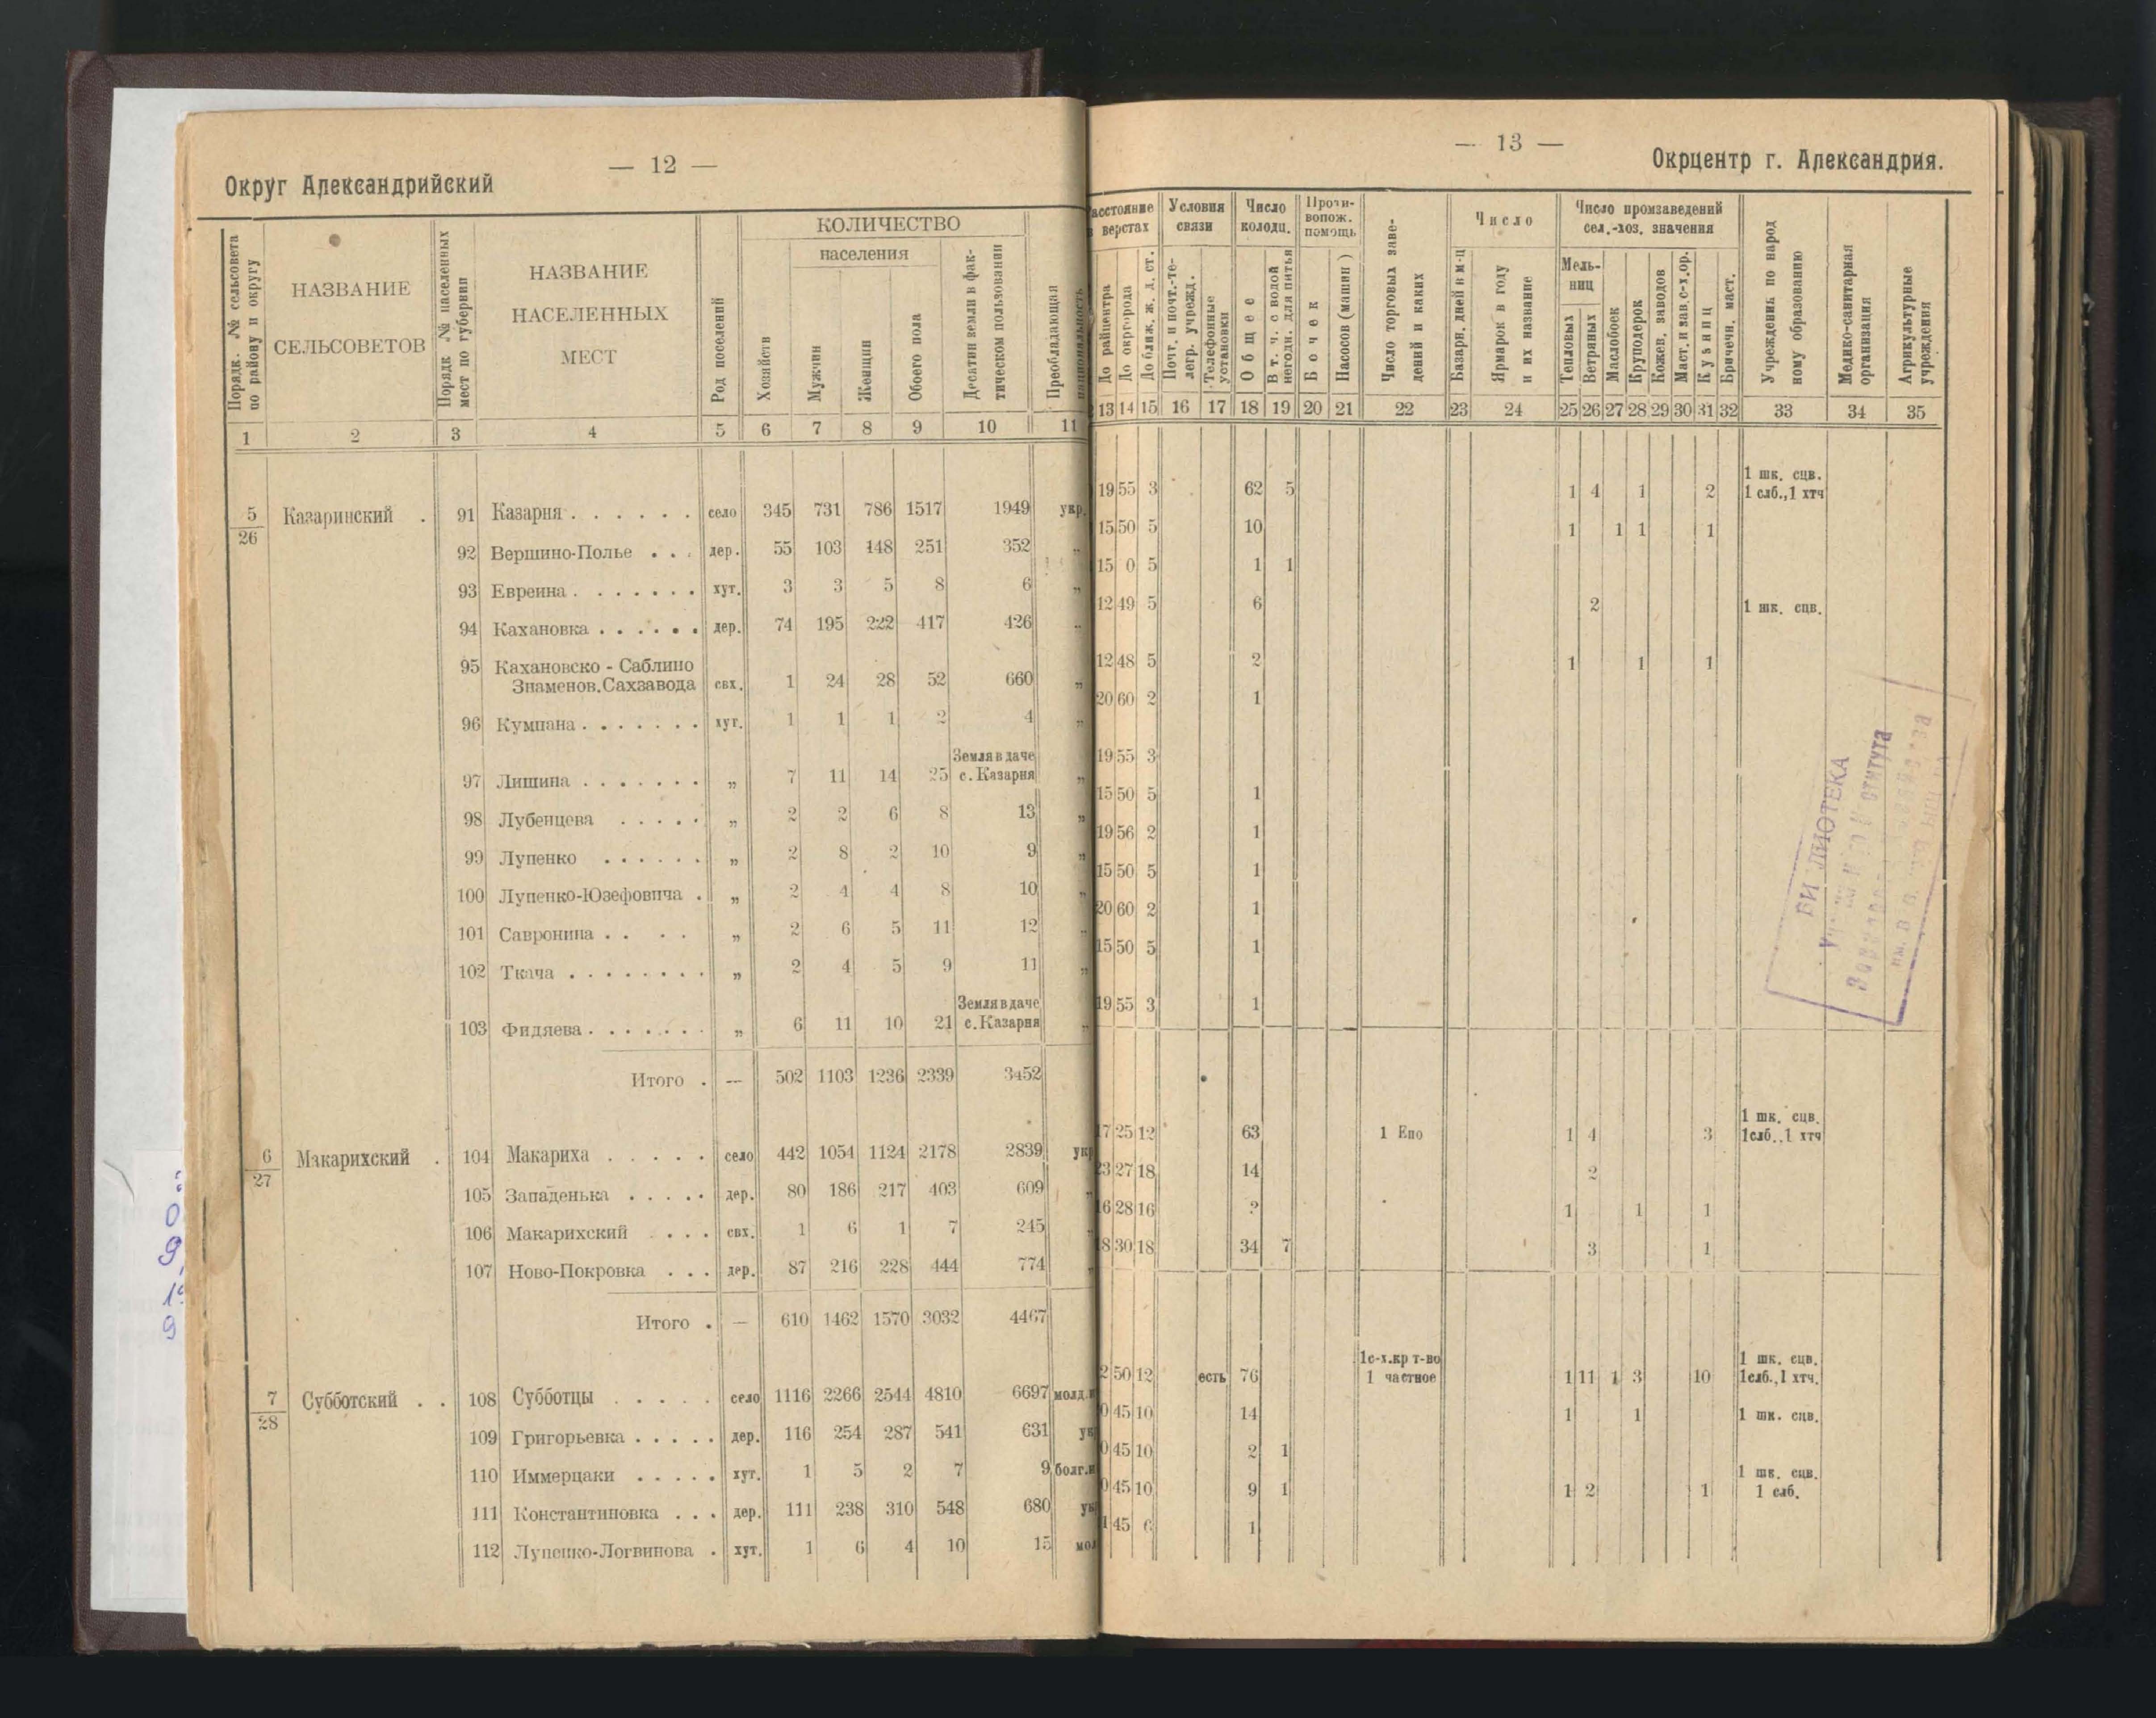 — 12 —
Округ Александрийский
Порядк. № сельсовета по району и округу
НАЗВАНИЕ СЕЛЬСОВЕТОВ
Порядк. № населенных мест по губернии
НАЗВАНИЕ НАСЕЛЕННЫХ МЕСТ
Род поселений
КОЛИЧЕСТВО
населения
Хозяйств
Мужчин
Женщин
Обоего пола
Десятин земли в фактическом пользовании
Преобладающая национальность
1 2 3 4 5 6 7 8 9 10 11
5/26 Казаринский . 91 Казарня . . . . . . село 345 731 786 1517 1949 укр.
92 Вершино-Полье . . . дер. 55 103 148 251 352 „
93 Евреина . . . . . . . хут. 3 3 5 8 6 „
94 Кахановка . . . . . . дер. 74 195 222 417 426 „
95 Кахановско - Саблино
Знаменов.Сахзавода свх. 1 24 28 52 660 „
96 Кумпана . . . . . . . хут. 1 1 1 2 4 „
Земля в даче
97 Лишина . . . . . . . „ 7 11 14 25 с. Казарня „
98 Лубенцова . . . . . „ 2 2 6 8 13 „
99 Лупенко . . . . . . „ 2 8 2 10 9 „
100 Лупенко-Юзефовича . „ 2 4 4 8 10 „
101 Савронина . . . . „ 2 6 5 11 12 „
102 Ткача . . . . . . . . „ 2 4 5 9 11 „
Земля в даче
103 Фидяева . . . . . . . „ 6 11 10 21 с. Казарня „
Итого . — 502 1103 1236 2339 3452
6/27 Макарихский . 104 Макариха . . . . . село 442 1054 1124 2178 2839 укр
105 Западенька . . . . . дер. 80 186 217 403 609 „
106 Макарихский . . . свх. 1 6 1 7 245 „
107 Ново-Покровка . . . дер. 87 216 228 444 774 „
Итого . — 610 1462 1570 3032 4467
7/28 Субботский . . 108 Субботцы . . . . . село 1116 2266 2544 4810 6697 молд.
109 Григорьевка . . . . . дер. 116 254 287 541 631 ук
110 Иммерцаки . . . . . хут. 1 5 2 7 9 болг.
111 Константиновка . . . дер. 111 238 310 548 680 ук
112 Лупенко-Логвинова . хут. 1 6 4 10 15 мол
— 13 —
Окрцентр г. Александрия.
асстояние в верстах
До райцентра
До окргорода
До ближ. ж. д. ст.
Условия связи
Почт. и почт.-телегр. учрежд.
Телефонные установки
Число колодц.
Общее
В т. ч. с водой негодн. для питья
Противопож. помощь
Бочек
Насосов (машин)
Число торговых заведений и каких
Число
Базарн. дней в м-ц
Ярмарок в году и их название
Число промзаведений сел.-хоз. значения
Мельниц
Тепловых
Ветряных
Маслобоек
Круподерок
Кожев. заводов
Маст. и зав. с-х. ор.
Кузниц
Бричечн. маст.
Учреждень по народному образованию
Медико-санитарная организация
Агрикультурные учреждения
13 14 15 16 17 18 19 20 21 22 23 24 25 26 27 28 29 30 31 32 33 34 35
1 шк. сцв.
19 55 3 62 5 1 4 1 2 1 слб.,1 хтч
15 50 5 10 1 1 1 1
15 0 5 1 1
12 49 5 6 2 1 шк. сцв.
12 48 5 2 1 1 1
20 60 2 1
19 55 3
15 50 5 1
19 56 2 1
15 50 5 1
20 60 2 1
15 50 5 1
19 55 3 1
1 шк. сцв.
17 25 12 63 1 Епо 1 4 3 1слб.,1 хтч
23 27 18 14 2
16 28 16 2 1 1 1
8 30 18 34 7 3 1
1с-х.кр т-во 1 шк. сцв.
2 50 12 есть 76 1 частное 1 11 1 3 10 1слб.,1 хтч.
0 45 10 14 1 1 1 шк. сцв.
0 45 10 2 1
1 шк. сцв.
0 45 10 9 1 1 2 1 1 слб.
1 45 6 1
БИ ЛИОТЕКА